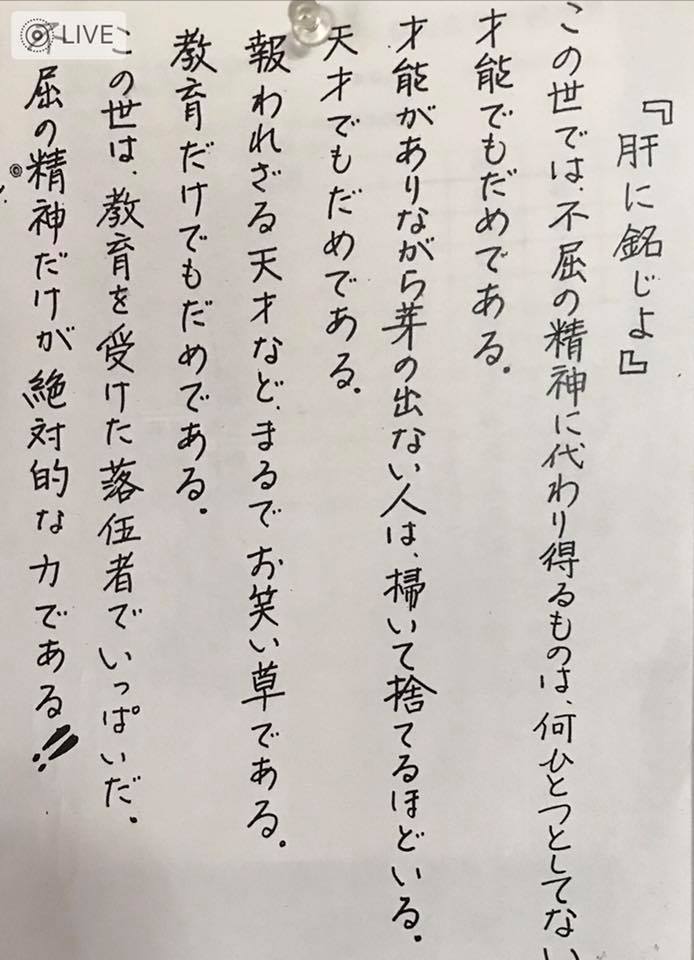 『肝に銘じよ』
この世では、不屈の精神に代わり得るものは、何ひとつとしてない
才能でもだめである。
才能がありながら芽の出ない人は、掃いて捨てるほどいる。
天才でもだめである。
報われざる天才など、まるでお笑い草である。
教育だけでもだめである。
この世は、教育を受けた落伍者でいっぱいだ。
屈の精神だけが絶対的な力である!!
LIVE